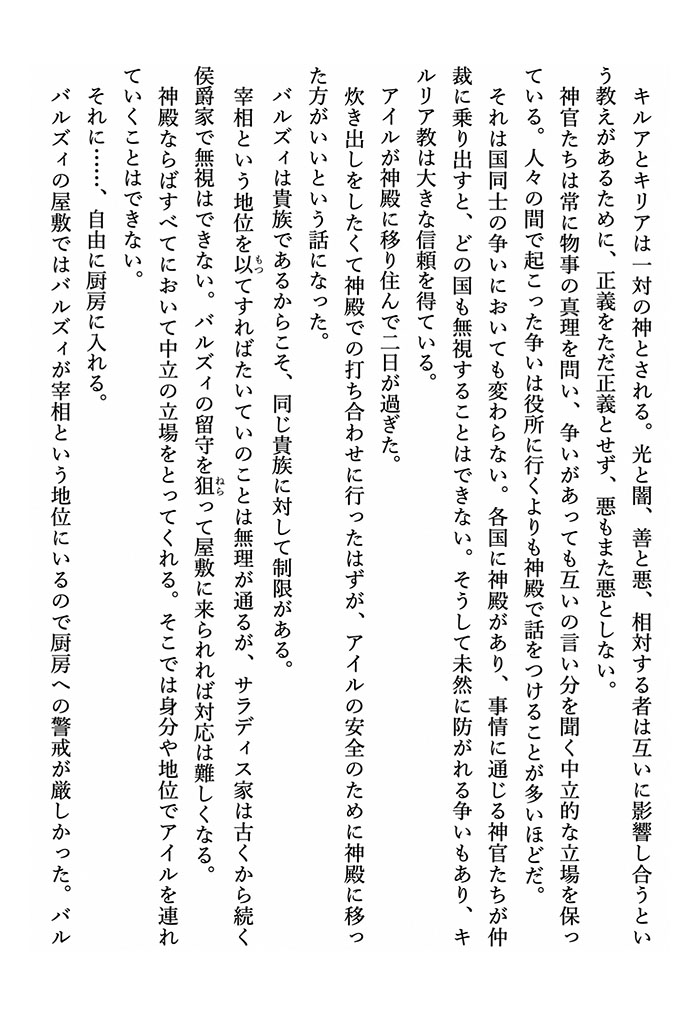 キルアとキリアは一対の神とされる。光と闇、善と悪、相対する者は互いに影響し合うとい
う教えがあるために、正義をただ正義とせず、悪もまた悪としない。
神官たちは常に物事の真理を問い、争いがあっても互いの言い分を聞く中立的な立場を保っ
ている。人々の間で起こった争いは役所に行くよりも神殿で話をつけることが多いほどだ。
それは国同士の争いにおいても変わらない。各国に神殿があり、事情に通じる神官たちが仲
裁に乗り出すと、どの国も無視することはできない。そうして未然に防がれる争いもあり、キ
ルリア教は大きな信頼を得ている。
アイルが神殿に移り住んで二日が過ぎた。
炊き出しをしたくて神殿での打ち合わせに行ったはずが、アイルの安全のために神殿に移っ
た方がいいという話になった。
バルズィは貴族であるからこそ、同じ貴族に対して制限がある。
宰相という地位を以てすればたいていのことは無理が通るが、サラディス家は古くから続く
もつ
侯爵家で無視はできない。バルズィの留守を狙って屋敷に来られれば対応は難しくなる。
ねら
神殿ならばすべてにおいて中立の立場をとってくれる。そこでは身分や地位でアイルを連れ
ていくことはできない。
それに……、自由に厨房に入れる。
バルズィの屋敷ではバルズィが宰相という地位にいるので厨房への警戒が厳しかった。バル